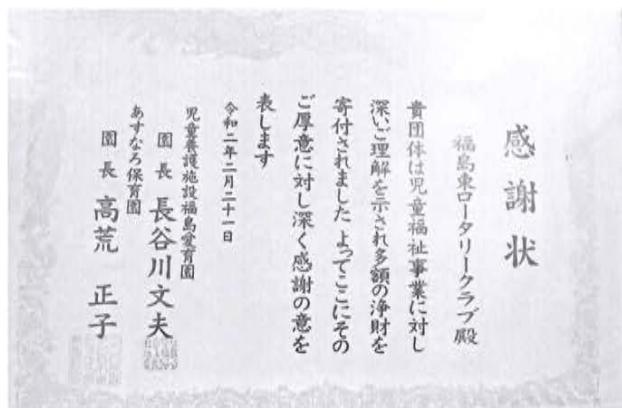 感謝状
福島東ロータリークラブ殿
貴団体は児童福祉事業に対し
深いご理解を示され多額の浄財を
寄付されました よってここにその
ご厚意に対し深く感謝の意を
表します
令和二年二月二十一日
児童養護施設福島愛育園
園長 長谷川文夫
あすなろ保育園
園長 高荒 正子